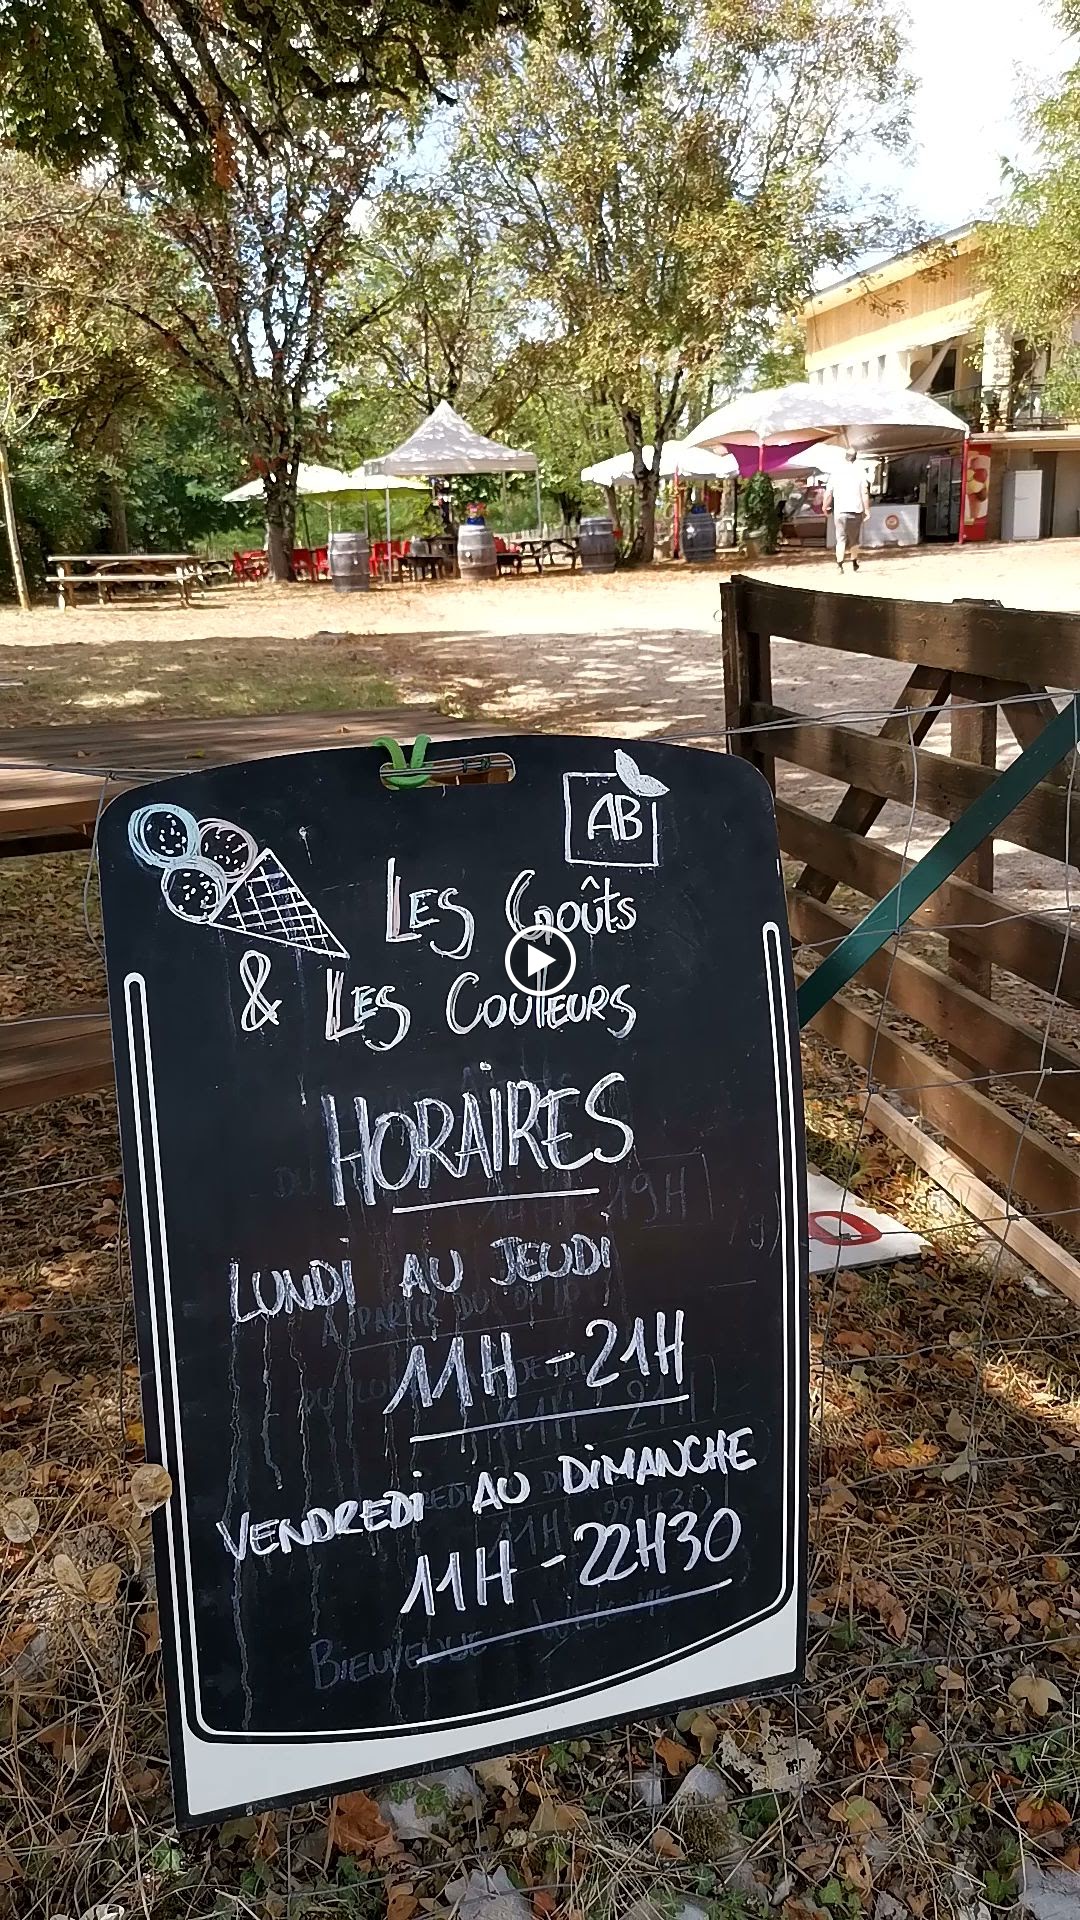 AB
Les Goûts
& Les Couleurs
HORAiRES
LUNDi AU JEUDi
11H - 21H
VENDREDi AU DiMANCHE
11H - 22H30
BIENVENUE - WELCOME